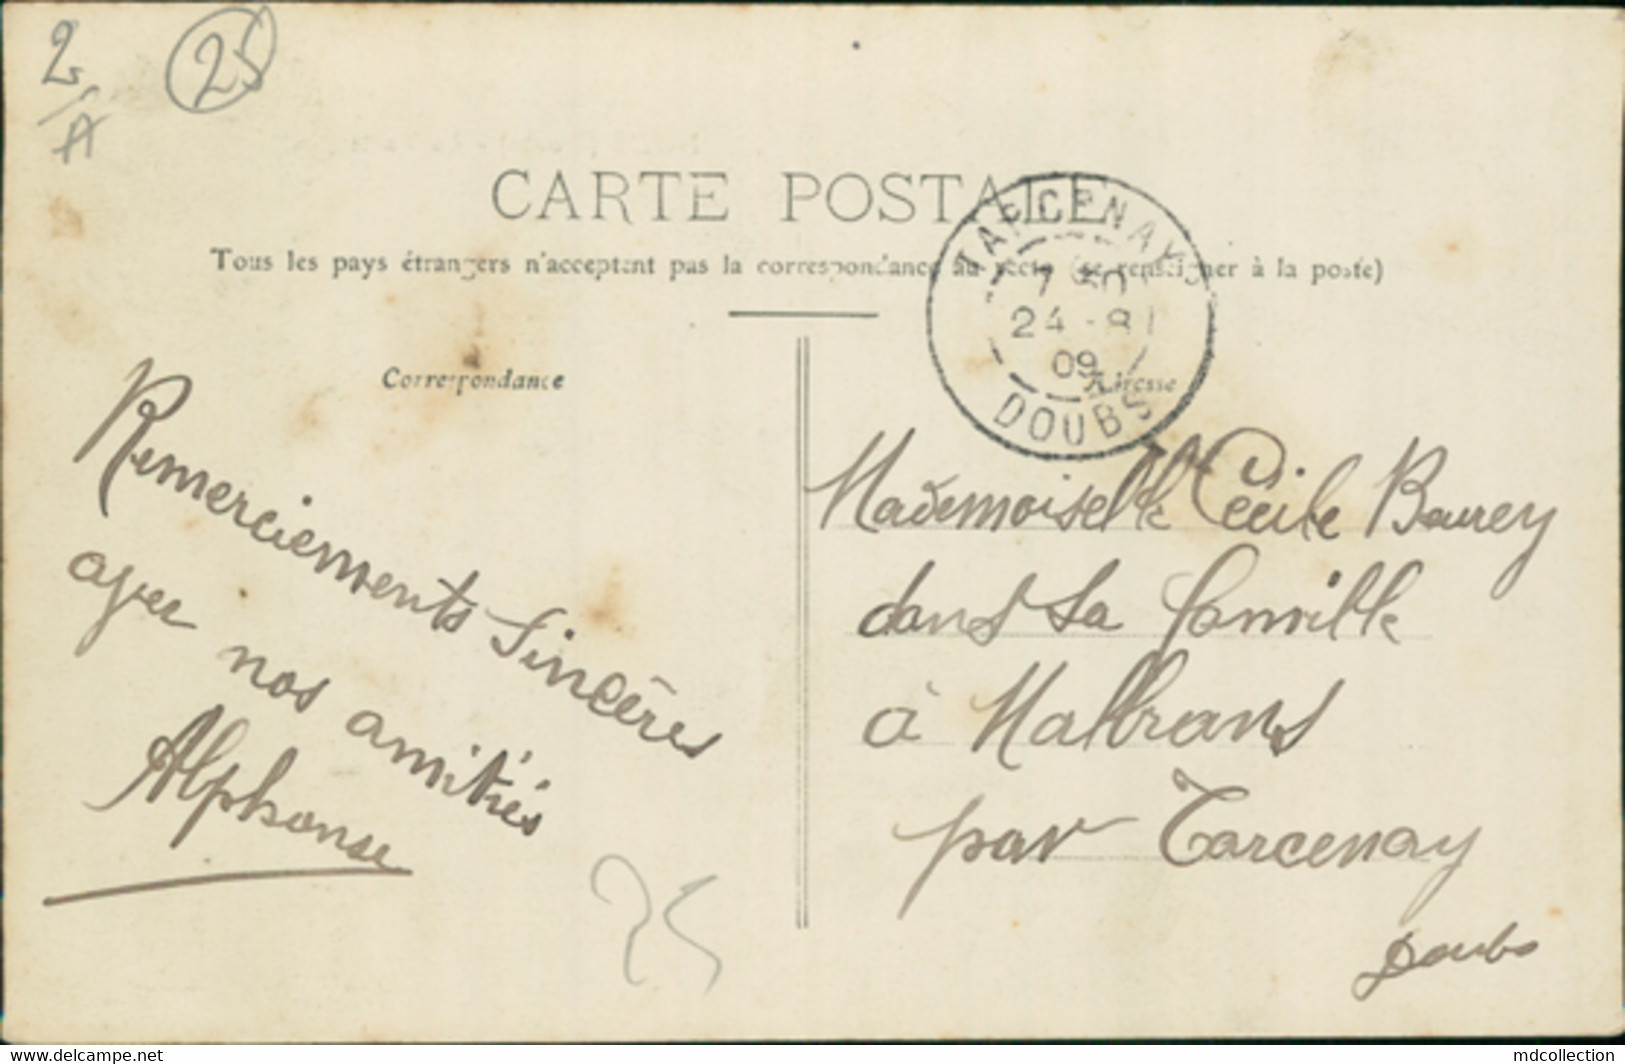 2.
A
25
CARTE POSTALE
Tous les pays étrangers n'acceptent pas la correspondance au recto (se renseigner à la poste)
TARCENAY
7 50
24 - 8
09
DOUBS
Correspondance
Adresse
Remerciements Sincères
avec nos amitiés
Alphonse
25
Mademoiselle Cécile Bourey
dans sa famille
à Malbrans
par Tarcenay
Doubs
www.delcampe.net
mdcollection